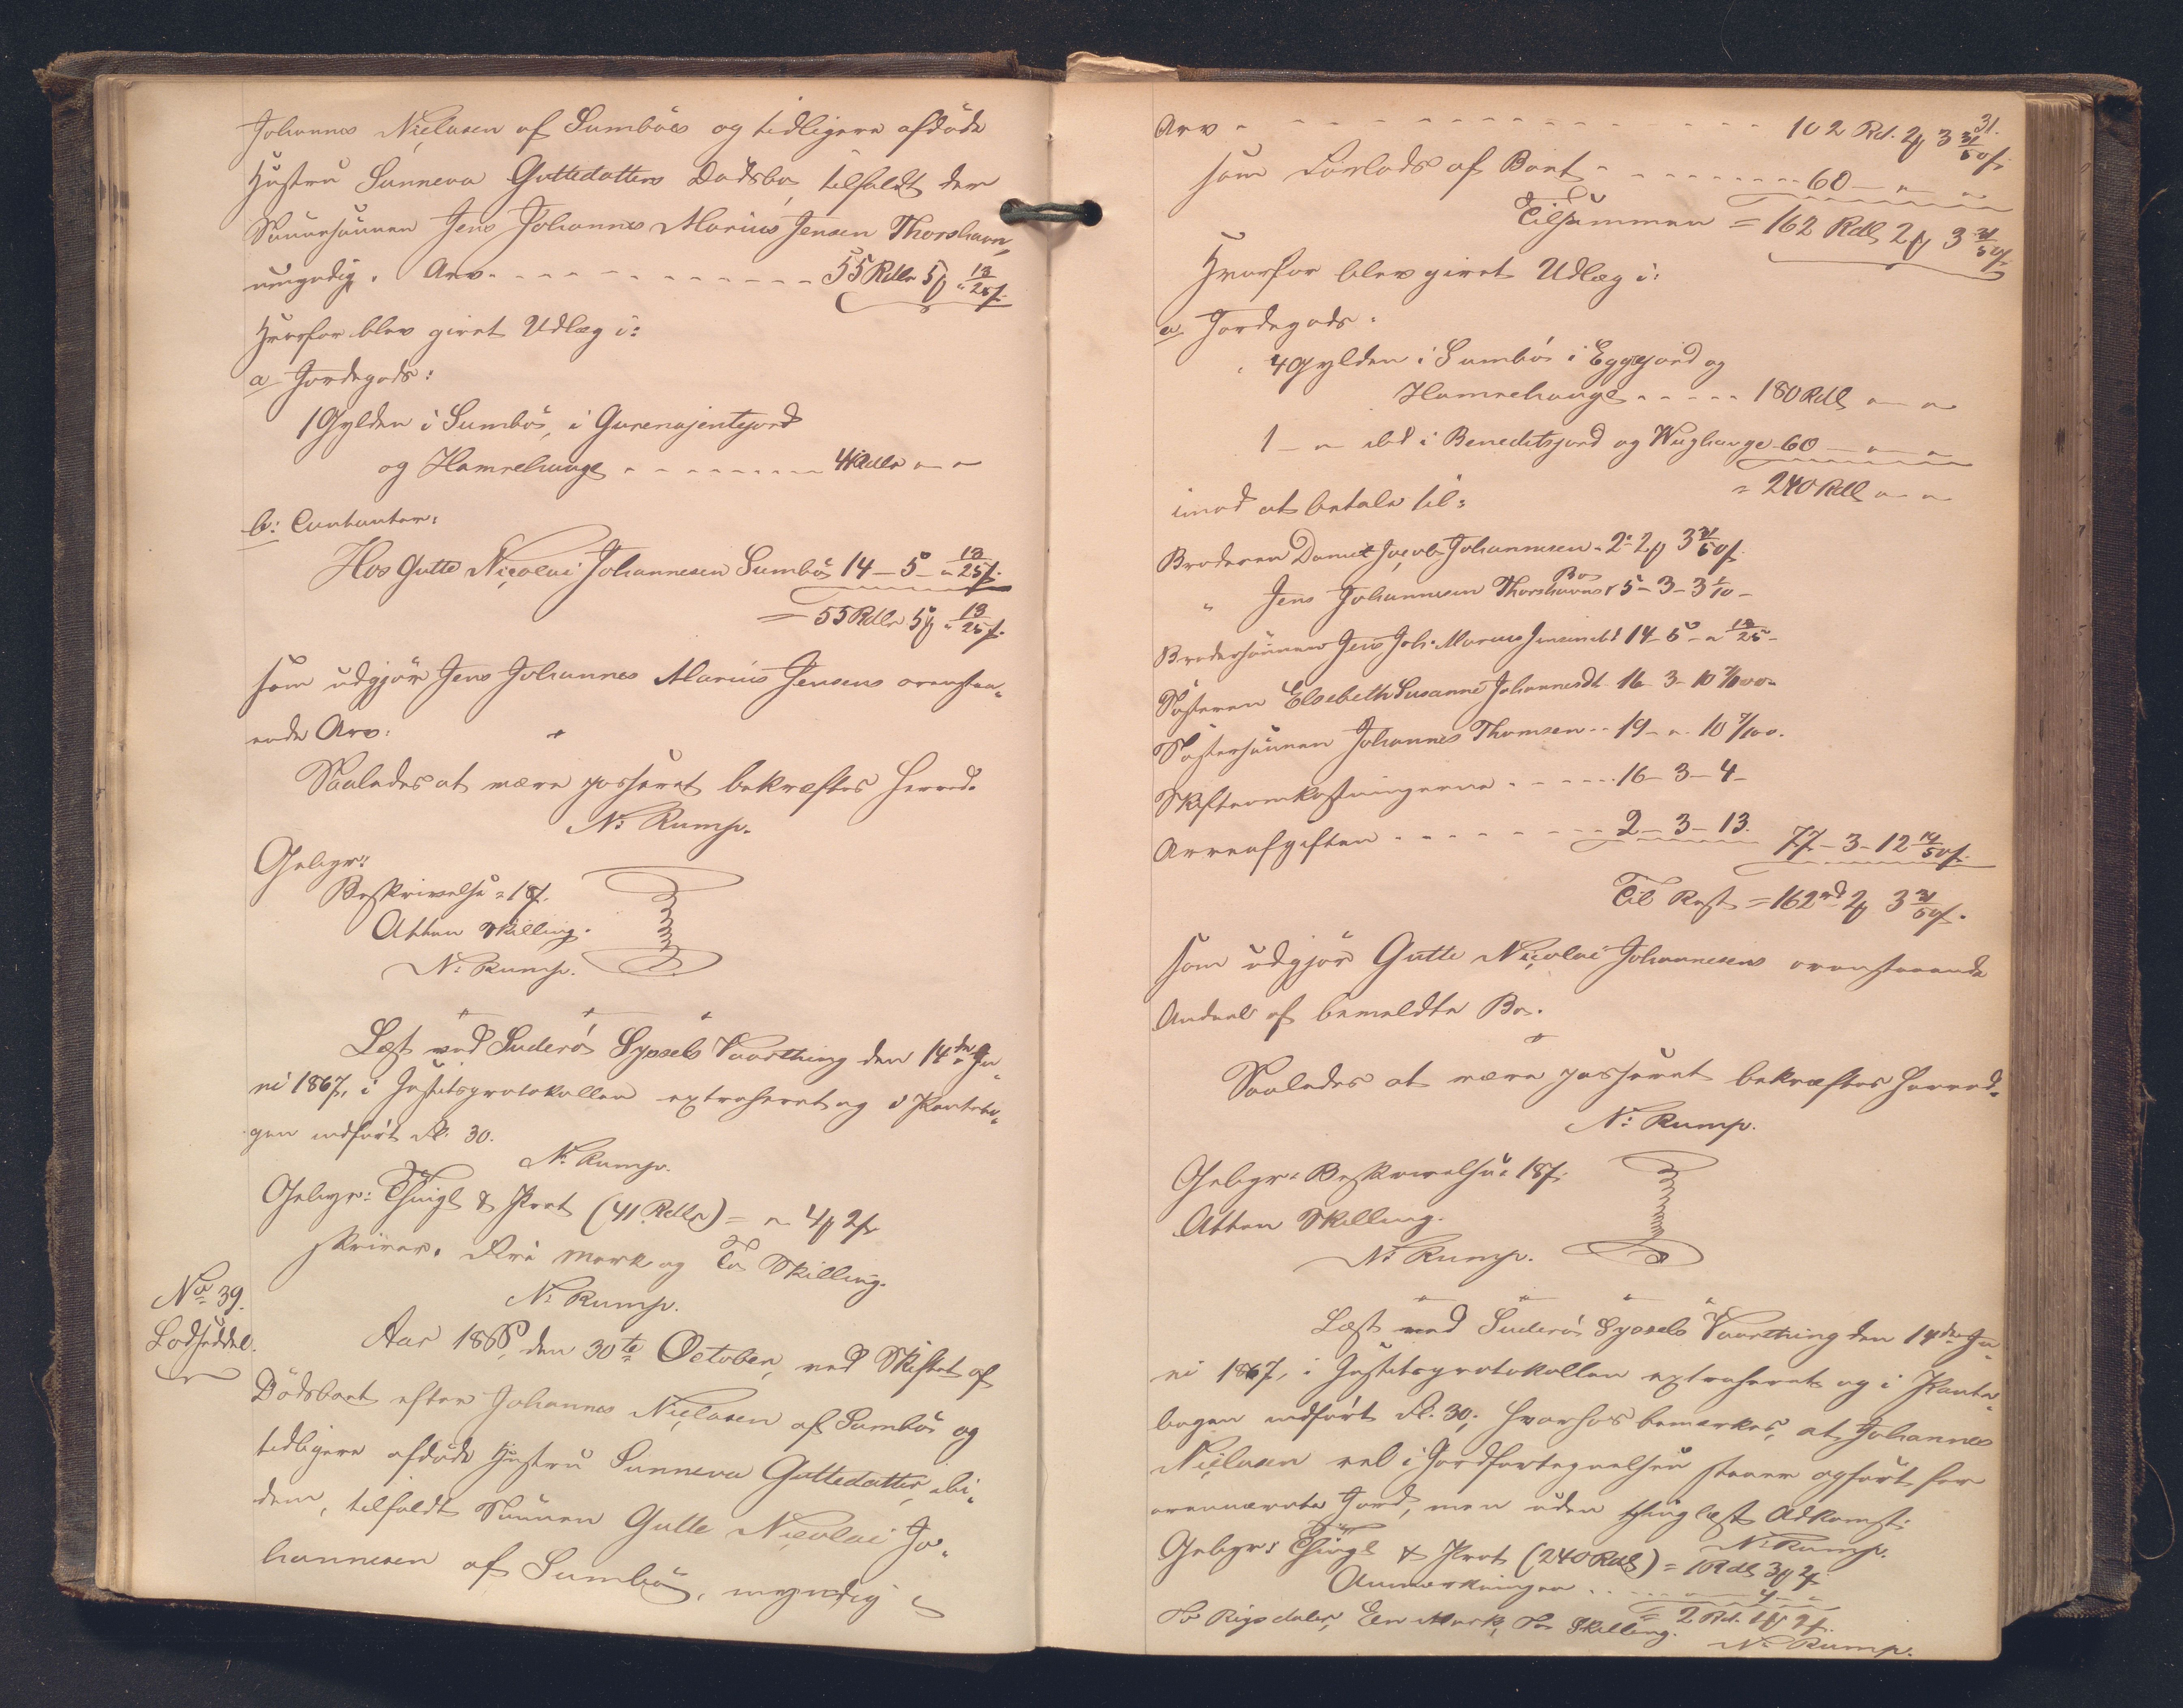 Johannes Nielasen af Sumböe og tidligere afdöde
Hustru Sunneva Guttedatters Dödsbo, tilfaldt der
Sönnesönnen Jens Johannes Marius Jensen Thorshavn,
umyndig, Arv. - - - - - - - - - - - 55 Rdlr 5 ꝟ " 13/25 ſ.
Hvorfor blev givet Udlæg i:
a Jordegods:
1 Gylden i Sumbö, i Gurenajentejord
og Hamrehauge - - - - - - - - 41 Rdlr " "
b: Contanter:
Hos Gutte Nicolai Johannesen Sumbö 14 - 5 - " 13/25 ſ.
= 55 Rdlr 5 ꝟ " 13/25 ſ.
som udgjör Jens Johannes Marius Jensens ovenstaa-
ende Arv.
Saaledes at være passeret bekræftes herved.
N: Rump.
Gebyr:
Beskrivelse = 18 ſ.
Atten Skilling.
N: Rump.
Læst ved Suderö Syssels Vaarthing den 14de Ju-
ni 1867, i Justitsprotokollen extraheret og i Pantebo-
gen indfört Fl. 30.
N: Rump.
Gebyr: Thingl & Prot (41 Rdlr) = " 4 ꝟ 2 ſ
skriver. Fire Mark og To Skilling.
N: Rump.
No 39.
Lodseddel.
Aar 1866, den 30te October, ved Skiftet af
Dödsboet efter Johannes Nielasen af Sumbö og
tidligere afdöde Hustru Sunneva Guttedatter, ibi-
dem, tilfaldt Sönnen Gutte Nicolai Jo-
hannesen af Sumbö, myndig i
31.
Arv - - - - - - - - - - - - - - 102 Rd. 2 ꝟ 3 31/50 ſ.
som Forlods af Boet - - - - - - - - 60 - " - "
Tilsammen = 162 Rdlr 2 ꝟ 3 31/50 ſ.
Hvorfor blev givet Udlæg i:
a Jordegods:
4 Gylden i Sumbö i Eggejord og
Hamrehauge - - - - - 180 Rdlr " - "
1 - " ibd i Beneditsjord og Wughauge - 60 - " - "
= 240 Rdlr " - "
imod at betale til:
Broderen Daniel Jacob Johannesen - 2 - 2 ꝟ 3 31/50 ſ.
" Jens Johannesen Thorshavns Bo 5 - 3 - 3 1/10 -
Brodersönnen Jens Joh. Marius Jensen ibd 14 - 5 - " 13/25 -
Søsteren Elsebeth Susanne Johannesdt. 16 - 3 - 10 7/100 -
Søstersönnen Johannes Thomsen - - 19 - " - 10 7/100.
Skifteomkostningerne - - - - - - 16 - 3 - 4 -
Arveafgiften - - - - - - - - - 2 - 3 - 13. 77 - 3 - 12 19/50 ſ.
Til Rest = 162 rd 2 ꝟ 3 31/50 ſ.
som udgjör Gutte Nicolai Johannesens ovenstaaende
Andeel af bemeldte Bo.
Saaledes at være passeret bekræftes herved.
N: Rump.
Gebyr: Beskrivelse: 18 ſ.
Atten Skilling.
N: Rump.
Læst ved Suderö Syssels Vaarthing den 14de Ju-
ni 1867, i Justitsprotokollen extraheret og i Pante-
bogen indfört Fl. 30; hvorhos bemærkes, at Johannes
Nielasen vel i Jordfortegnelsen staaer opfört for
ovennævnte Jord, men uden thinglæst Adkomst.
N: Rump.
Gebyr: Thingl & Prot (240 Rdlr) = 1 Rdlr 3 ꝟ 2 ſ
Anmærkningen - - - - - " - 4 - "
= 2 Rd. 1 ꝟ 2 ſ.
To Rigsdaler, Een Mark, To Skilling.
N: Rump.